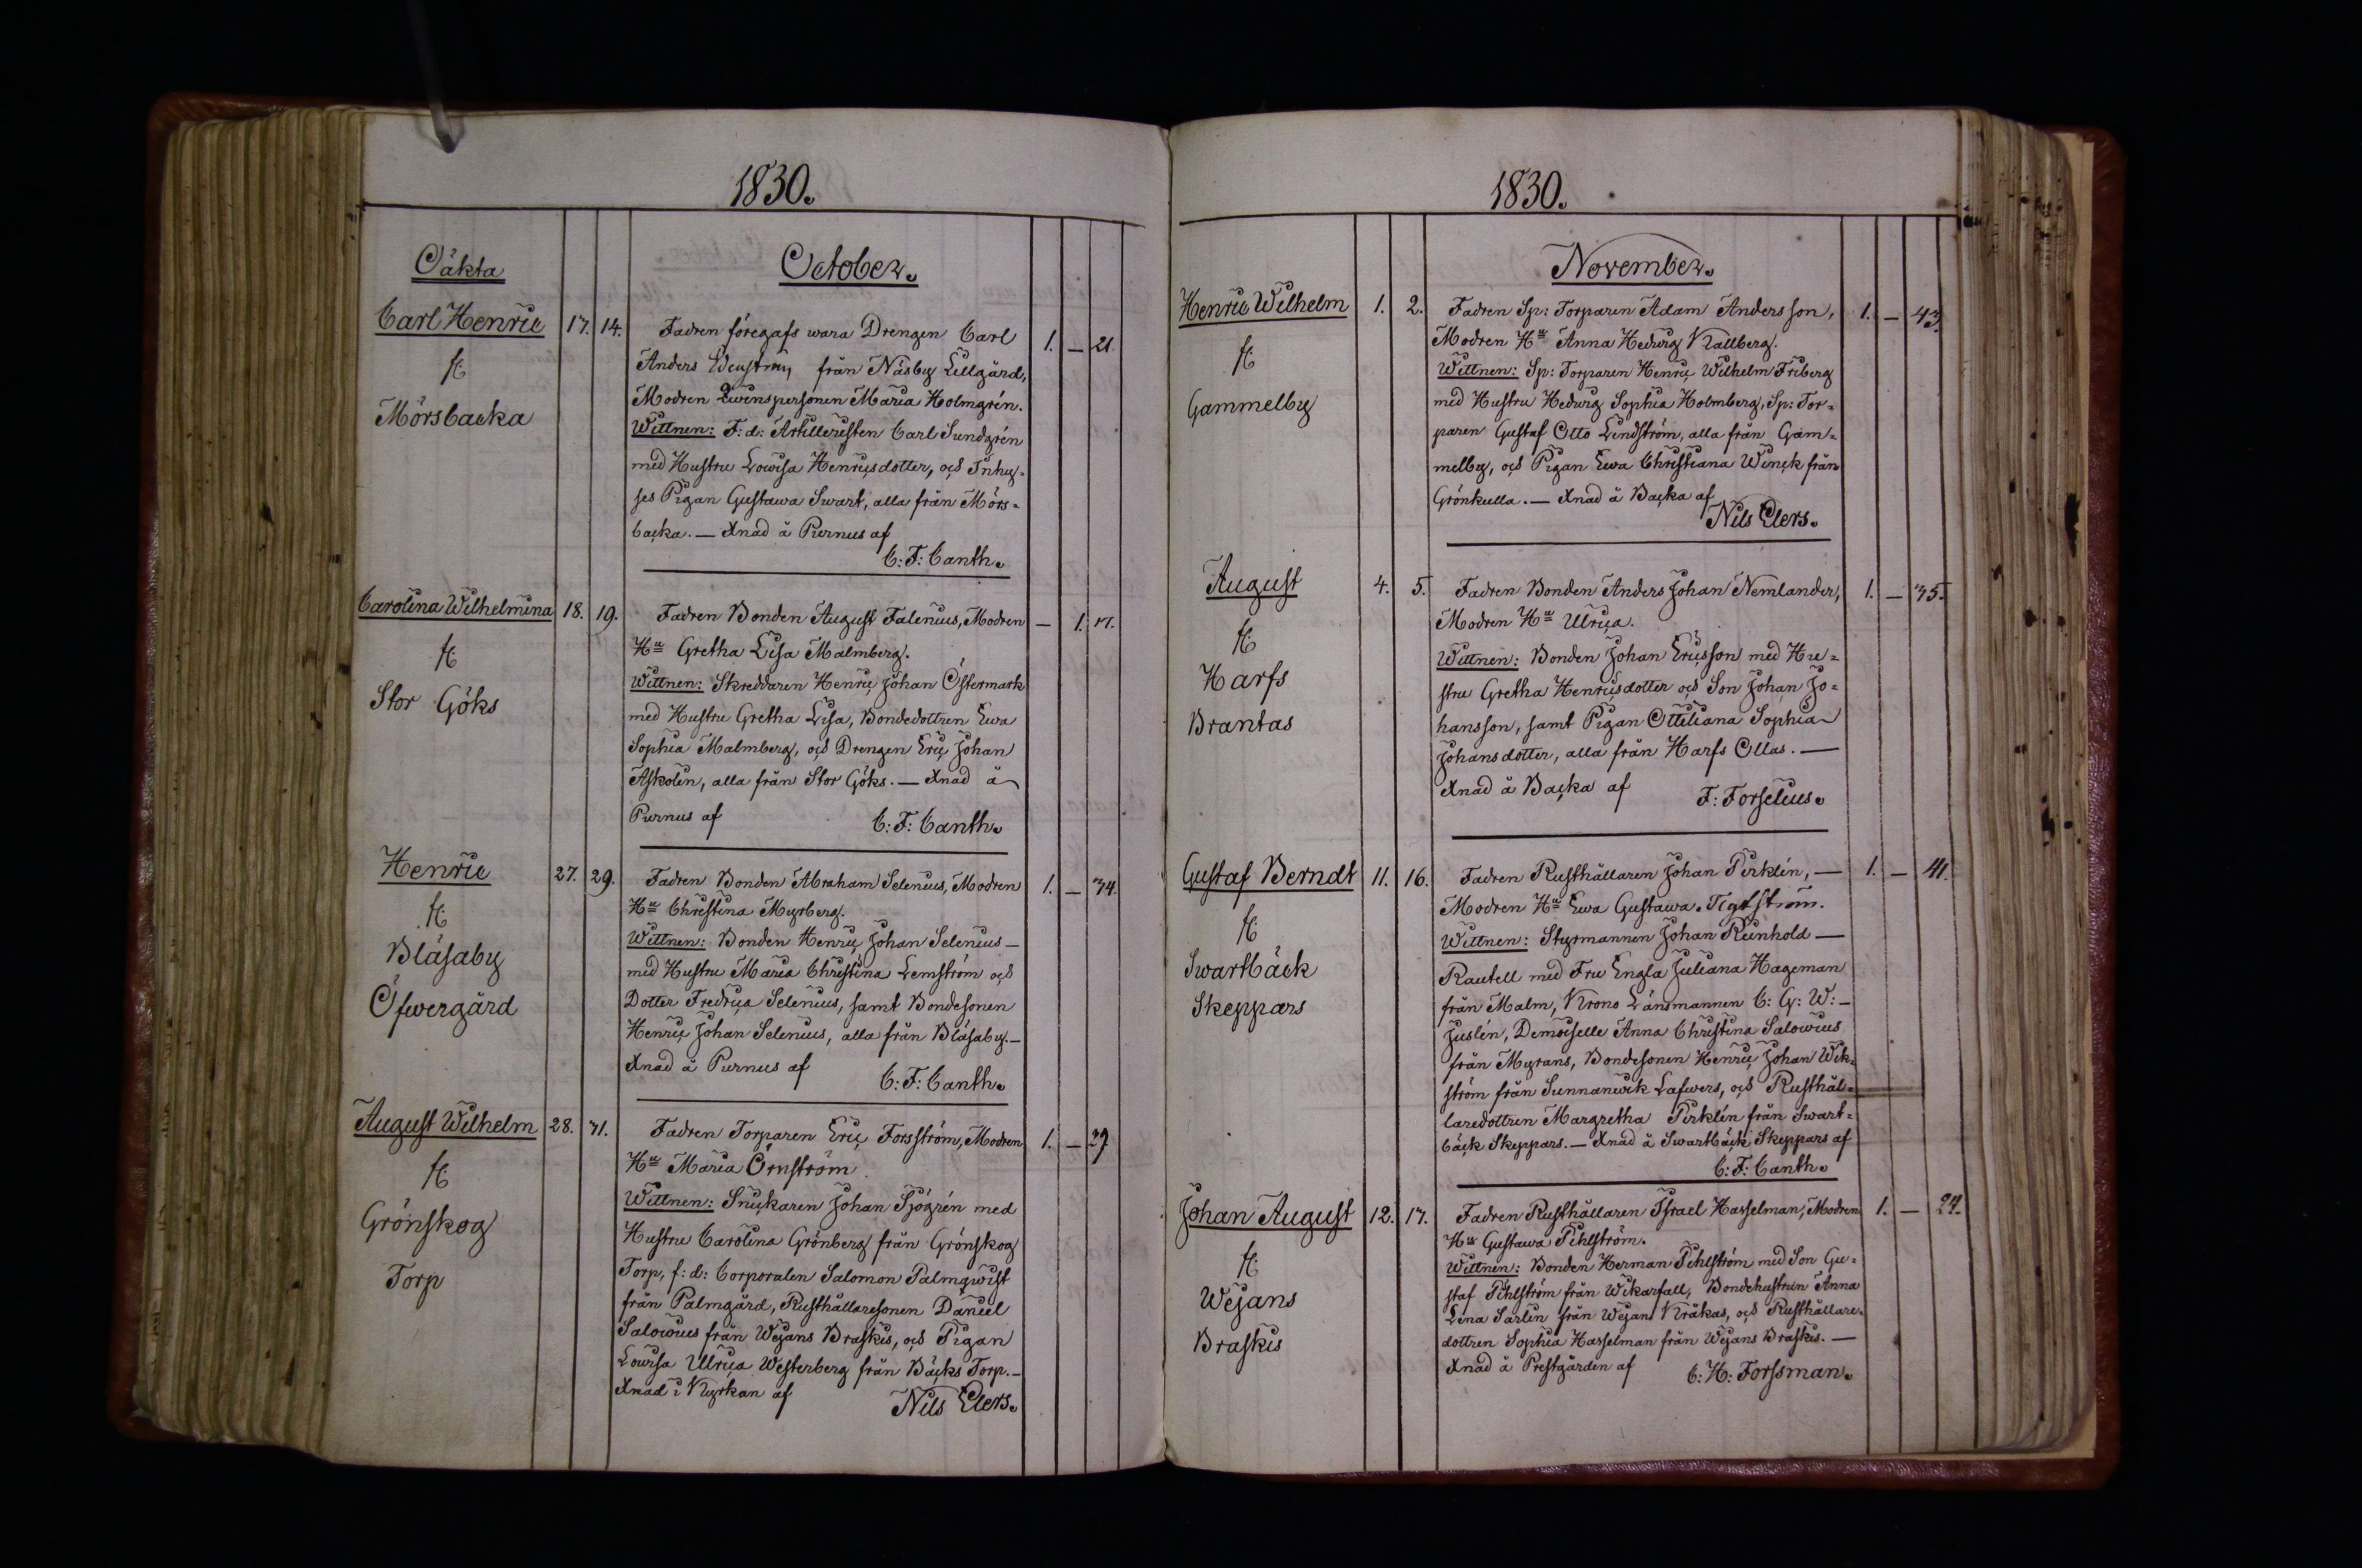 1830.
Oäkta
October.
Carl Henric 17. 14. Fadren föregafs wara Drengen Carl 1. — 21.
fr:
Mörsbacka
Anders från Näsby Lillgård,
Modren Qwinspersonen Maria Holmgrén.
Wittnen: F: d: Artilleristen Carl Sundgrén
med Hustru Lowisa Henricsdotter, och Inhy=
ses Pigan Gustawa Swart, alla från Mörs=
backa. — Xnad å Purnus af
C: F: Canth.
Carolina Wilhelmina 18. 19. Fadren Bonden August Falenius, Modren — 1. 17.
fr:
Stor Göks
Hu Gretha Lisa Malmberg.
Wittnen: Skreddaren Henric Johan Östermark
med Hustru Gretha Lisa, Bondedottren Ewa
Sophia Malmberg, och Drengen Eric Johan
Askolin, alla från Stor Göks. — Xnad å
Purnus af C: F: Canth.
Henric 27. 29. Fadren Bonden Abraham Selenius, Modren 1. — 34.
fr:
Blåsaby
Öfwergård
Hu Christina Myrberg.
Wittnen: Bonden Henric Johan Selenius —
med Hustru Maria Christina Lemström och
Dotter Fredrica Selenius, samt Bondesonen
Henric Johan Selenius, alla från Blåsaby. —
Xnad å Purnus af C: F: Canth.
August Wilhelm 28. 31. Fadren Torparen Eric Forsström, Modren 1. — 39
fr:
Grönskog
Torp
Hu Maria Örnström
Wittnen: Snickaren Johan Sjögrén med
Hustru Carolina Grönberg från Grönskog
Torp, f: d: Corporalen Salomon Palmqwist
från Palmgård, Rusthållaresonen Daniel
Salowius från Wejans Braskis, och Pigan
Lowisa Ulrica Westerberg från Bäcks Torp. —
Xnad i Kyrkan af Nils Elers.
1830.
November.
Henric Wilhelm 1. 2. Fadren Sp: Torparen Adam Andersson, 1. — 43.
fr:
Gammelby
Modren Hu Anna Hedwig Kallberg.
Wittnen: Sp: Torparen Henric Wilhelm Friberg
med Hustru Hedwig Sophia Holmberg, Sp: Tor=
paren Gustaf Otto Lindström, alla från Gam=
melby, och Pigan Ewa Christiana Winck från
Grönkulla. — Xnad å Backa af
Nils Elers.
August 4. 5. Fadren Bonden Anders Johan Nemlander, 1. — 35.
fr:
Harfs
Brantas
Modren Hu Ulrica.
Wittnen: Bonden Johan Ericsson med Hu=
stru Gretha Henricsdotter och Son Johan Jo=
hansson, samt Pigan Ottiliana Sophia
Johansdotter, alla från Harfs Ollas. —
Xnad å Backa af F: Forselius.
Gustaf Berndt 11. 16. Fadren Rusthållaren Johan Pirklén, — 1. — 41.
fr:
Swartbäck
Skeppars
Modren Hu Ewa Gustawa Tigerström.
Wittnen: Styrmannen Johan Reinhold —
Rautell med Fru Engla Juliana Hageman
från Malm, Krono Länsmannen C: G: W: —
Juslén, Demoiselle Anna Christina Salowius
från Myrans, Bondesonen Henric Johan Wik=
ström från Sunnanwik Lafwers, och Rusthål=
laredottren Margretha Pirklén från Swart=
bäck Skeppars. — Xnad å Swartbäck Skeppars af
C: F: Canth.
Johan August 12. 17. Fadren Rusthållaren Israel Hasselman, Modren 1. — 24.
fr:
Wejans
Braskis
Hu Gustawa Pihlström.
Wittnen: Bonden Herman Pihlström med Son Gu=
staf Pihlström från Wikarfall, Bondehustrun Anna
Lena Sarlin från Wejans Kråkas, och Rusthållare=
dottren Sophia Hasselman från Wejans Braskis. —
Xnad å Prestgården af C: H: Forssman.